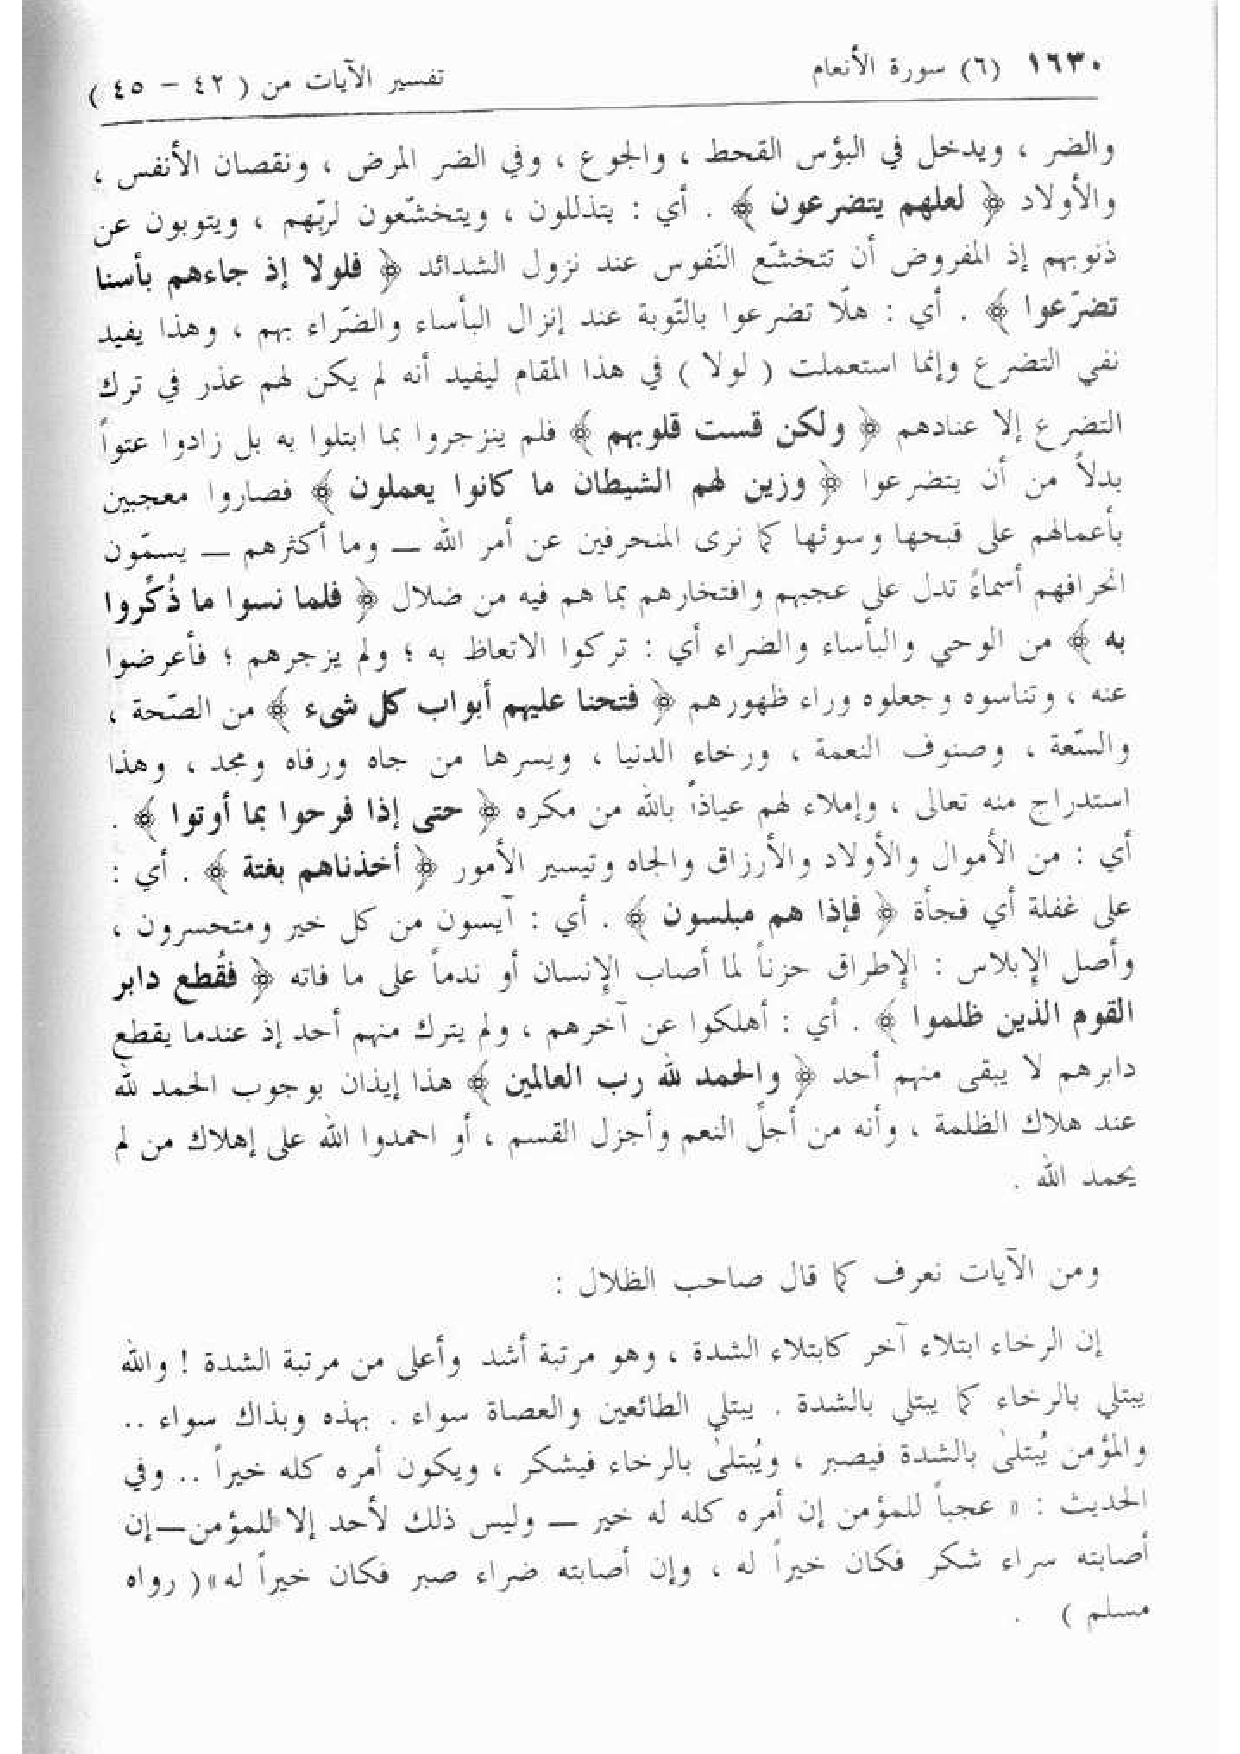 ١٦٣٠ (٦) سورة الأنعام تفسير الآيات من ( ٤٢ – ٤٥ )
والضر ، ويدخل في البؤس القحط ، والجوع ، وفي الضر المرض ، ونقصان الأنفس ،
والأولاد ﴿ لعلهم يتضرعون ﴾ . أي : يتذللون ، ويتخشّعون لربّهم ، ويتوبون عن
ذنوبهم إذ المفروض أن تتخشّع النّفوس عند نزول الشدائد ﴿ فلولا إذ جاءهم بأسنا
تضرّعوا ﴾ . أي : هلّا تضرعوا بالتّوبة عند إنزال البأساء والضّراء بهم ، وهذا يفيد
نفي التضرع وإنما استعملت ( لولا ) في هذا المقام ليفيد أنه لم يكن لهم عذر في ترك
التضرع إلا عنادهم ﴿ ولكن قست قلوبهم ﴾ فلم ينزجروا بما ابتلوا به بل زادوا عتواً
بدلاً من أن يتضرعوا ﴿ وزين لهم الشيطان ما كانوا يعملون ﴾ فصاروا معجبين
بأعمالهم على قبحها وسوئها كما نرى المنحرفين عن أمر الله ــ وما أكثرهم ــ يسمّون
انحرافهم أسماءً تدل على عجبهم وافتخارهم بما هم فيه من ضلال ﴿ فلما نسوا ما ذُكِّروا
به ﴾ من الوحي والبأساء والضراء أي : تركوا الاتعاظ به ؛ ولم يزجرهم ؛ فأعرضوا
عنه ، وتناسوه وجعلوه وراء ظهورهم ﴿ فتحنا عليهم أبواب كل شيء ﴾ من الصّحة ،
والسّعة ، وصنوف النعمة ، ورخاء الدنيا ، ويسرها من جاه ورفاه ومجد ، وهذا
استدراج منه تعالى ، وإملاء لهم عياذاً بالله من مكره ﴿ حتى إذا فرحوا بما أوتوا ﴾ .
أي : من الأموال والأولاد والأرزاق والجاه وتيسير الأمور ﴿ أخذناهم بغتة ﴾ . أي :
على غفلة أي فجأة ﴿ فإذا هم مبلسون ﴾ . أي : آيسون من كل خير ومتحسرون ،
وأصل الإبلاس : الإطراق حزناً لما أصاب الإنسان أو ندماً على ما فاته ﴿ فقُطع دابر
القوم الذين ظلموا ﴾ . أي : أهلكوا عن آخرهم ، ولم يترك منهم أحد إذ عندما يقطع
دابرهم لا يبقى منهم أحد ﴿ والحمد لله رب العالمين ﴾ هذا إيذان بوجوب الحمد لله
عند هلاك الظلمة ، وأنه من أجلّ النعم وأجزل القسم ، أو احمدوا الله على إهلاك من لم
يحمد الله .
ومن الآيات نعرف كما قال صاحب الظلال :
إن الرخاء ابتلاء آخر كابتلاء الشدة ، وهو مرتبة أشد وأعلى من مرتبة الشدة ! والله
يبتلي بالرخاء كما يبتلي بالشدة . يبتلي الطائعين والعصاة سواء . بهذه وبذاك سواء ..
والمؤمن يُبتلىٰ بالشدة فيصبر ، ويُبتلىٰ بالرخاء فيشكر ، ويكون أمره كله خيراً .. وفي
الحديث : « عجباً للمؤمن إن أمره كله له خير ــ وليس ذلك لأحد إلا للمؤمن ــ إن
أصابته سراء شكر فكان خيراً له ، وإن أصابته ضراء صبر فكان خيراً له »( رواه
مسلم ) .